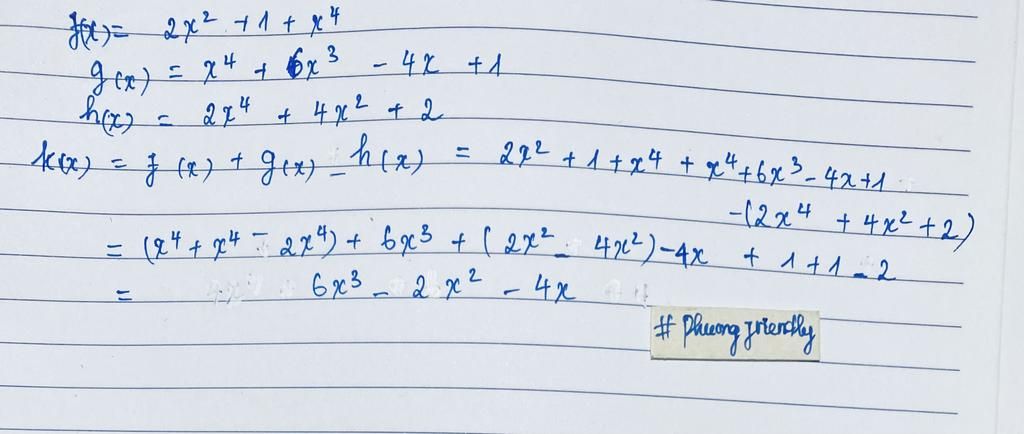 f(x) = 2x² + 1 + x⁴
g(x) = x⁴ + 6x³ - 4x + 1
h(x) = 2x⁴ + 4x² + 2
k(x) = f(x) + g(x) - h(x) = 2x² + 1 + x⁴ + x⁴ + 6x³ - 4x + 1
-(2x⁴ + 4x² + 2)
= (x⁴ + x⁴ - 2x⁴) + 6x³ + (2x² - 4x²) - 4x + 1 + 1 - 2
= 6x³ - 2x² - 4x
# Phuong friendly